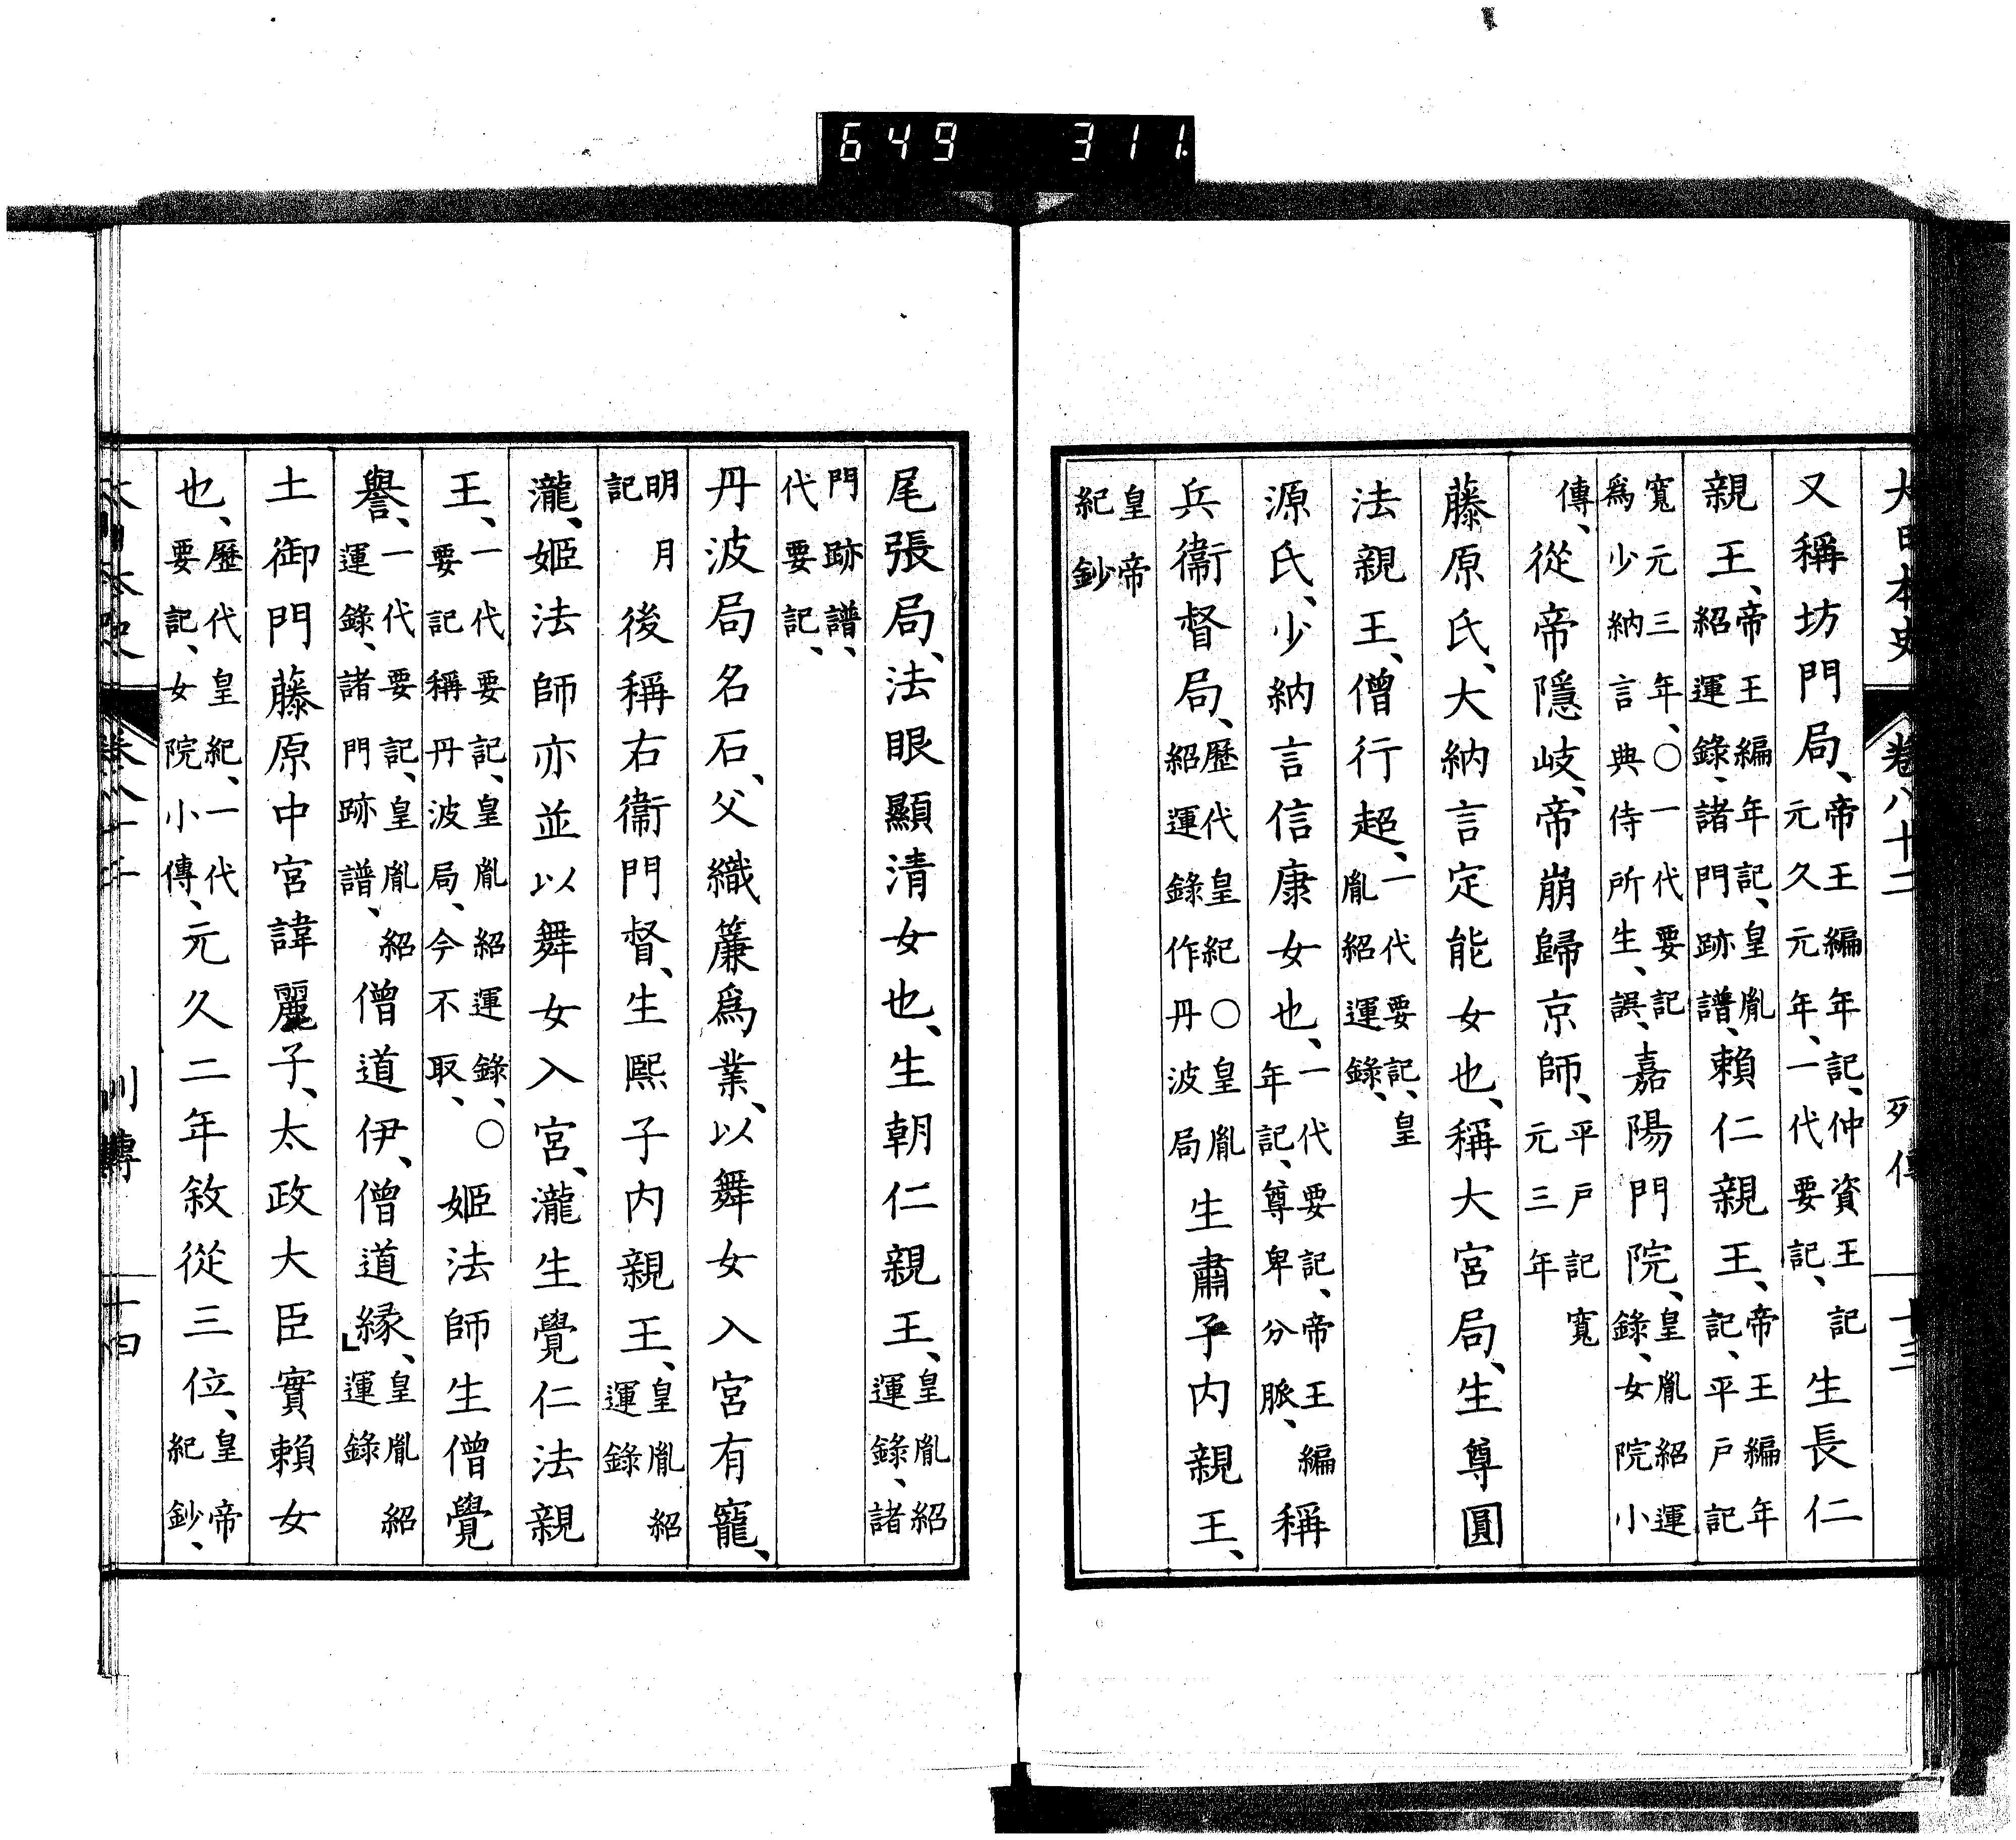 649 311
大日本史 卷八十二 列傳 十三
又稱坊門局、帝王編年記、仲資王記元久元年、一代要記、生長仁
親王、帝王編年記、皇胤紹運錄、諸門跡譜、賴仁親王、帝王編年記、平戸記
寬元三年、〇一代要記爲少納言典侍所生、誤、嘉陽門院、皇胤紹運錄、女院小
傳、從帝隱岐、帝崩歸京師、平戸記寬元三年
藤原氏、大納言定能女也、稱大宮局、生尊圓
法親王、僧行超、一代要記、皇胤紹運錄、
源氏、少納言信康女也、一代要記、帝王編年記、尊卑分脈、稱
兵衞督局、歷代皇紀〇皇胤紹運錄作丹波局生肅子内親王、
皇帝紀鈔
尾張局、法眼顯清女也、生朝仁親王、皇胤紹運錄、諸
門跡譜、代要記、
丹波局名石、父織簾爲業、以舞女入宮有寵、
明月記後稱右衞門督、生熙子内親王、皇胤紹運錄
瀧、姬法師亦並以舞女入宮、瀧生覺仁法親
王、一代要記、皇胤紹運錄、〇要記稱丹波局、今不取、姬法師生僧覺
譽、一代要記、皇胤紹運錄、諸門跡譜、僧道伊、僧道縁、皇胤紹運錄
土御門藤原中宮諱麗子、太政大臣實賴女
也、歷代皇紀、一代要記、女院小傳、元久二年敘從三位、皇帝紀鈔、
大日本史 卷八十二 列傳 十四